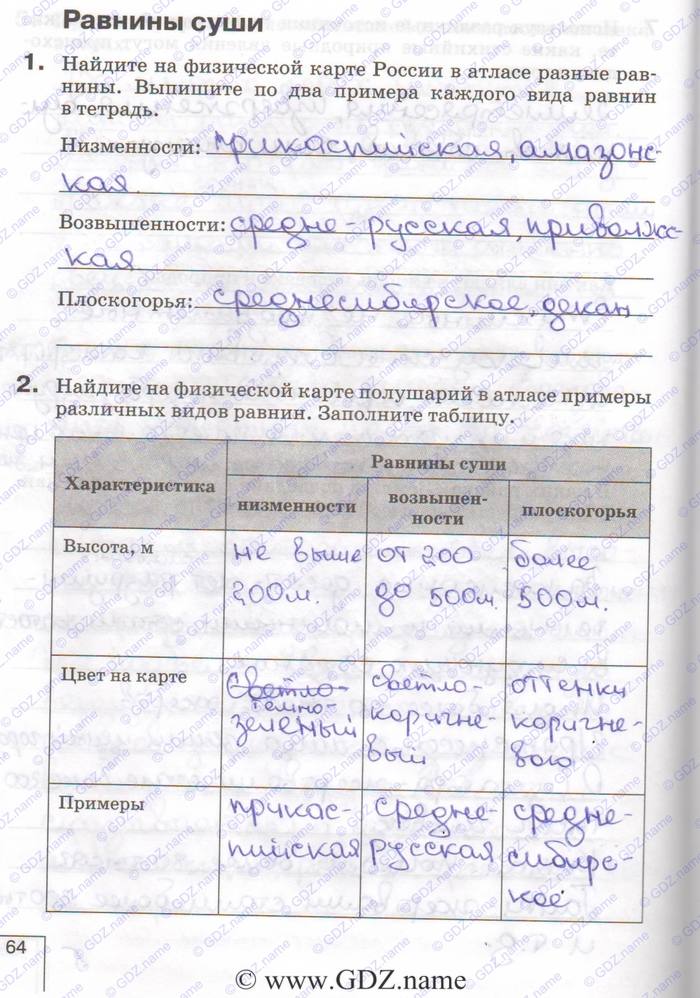 Равнины суши
1. Найдите на физической карте России в атласе разные рав-
нины. Выпишите по два примера каждого вида равнин
в тетрадь.
Низменности: прикаспийская, амазонс-
кая.
Возвышенности: средне-русская, приволжс-
кая
Плоскогорья: среднесибирское, декан
2. Найдите на физической карте полушарий в атласе примеры
различных видов равнин. Заполните таблицу.
Характеристика
Равнины суши
низменности
возвышен-
ности
плоскогорья
Высота, м
не выше
200м.
от 200
до 500м.
более
500м.
Цвет на карте
Светло-
темно-
зеленый
светло-
коричне-
вый
оттенки
коричне-
вого
Примеры
прикас-
пийская
средне-
русская
средне-
сибирс-
кое
64
© www.GDZ.name